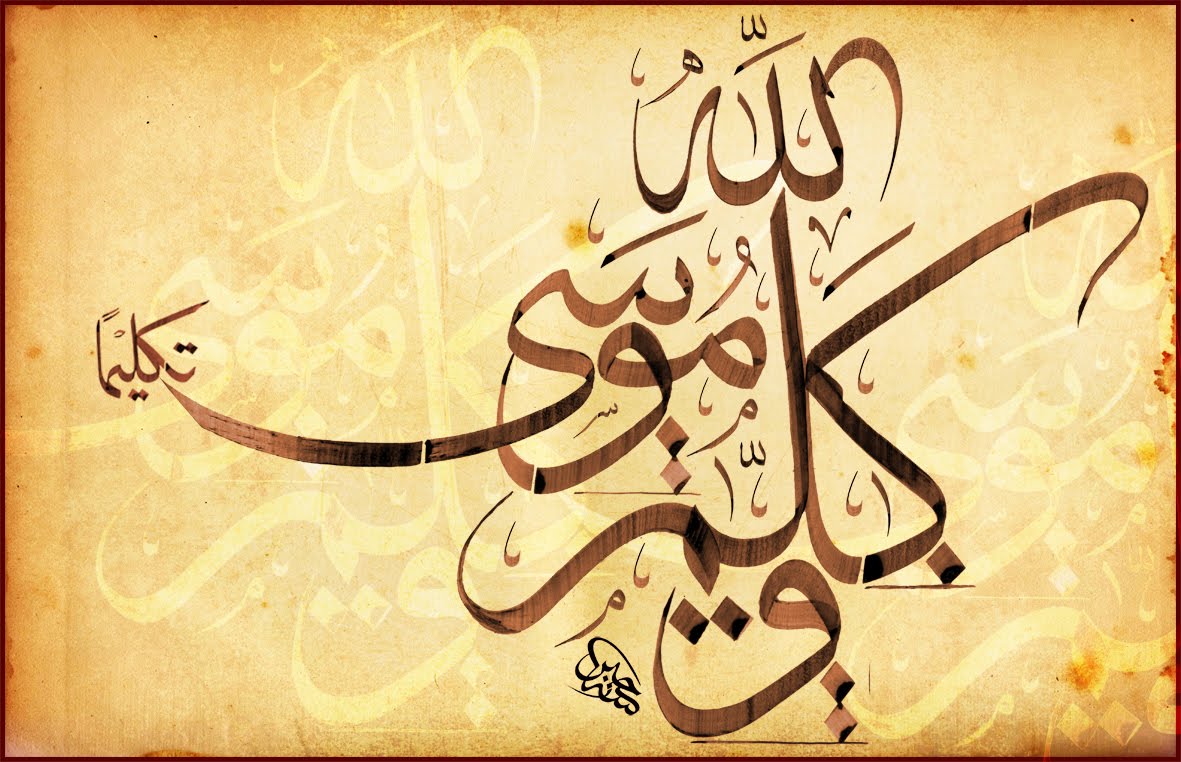 وَكَلَّمَ اللَّهُ مُوسَى تَكْلِيمًا